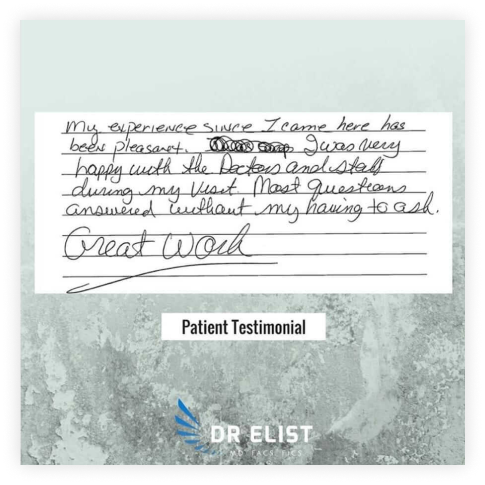 My experience since I came here has
been pleasant. I was very
happy with the Doctors and staff
during my visit. Most questions
answered without my having to ask.
Great Work
Patient Testimonial
DR ELIST
MD FACS FICS